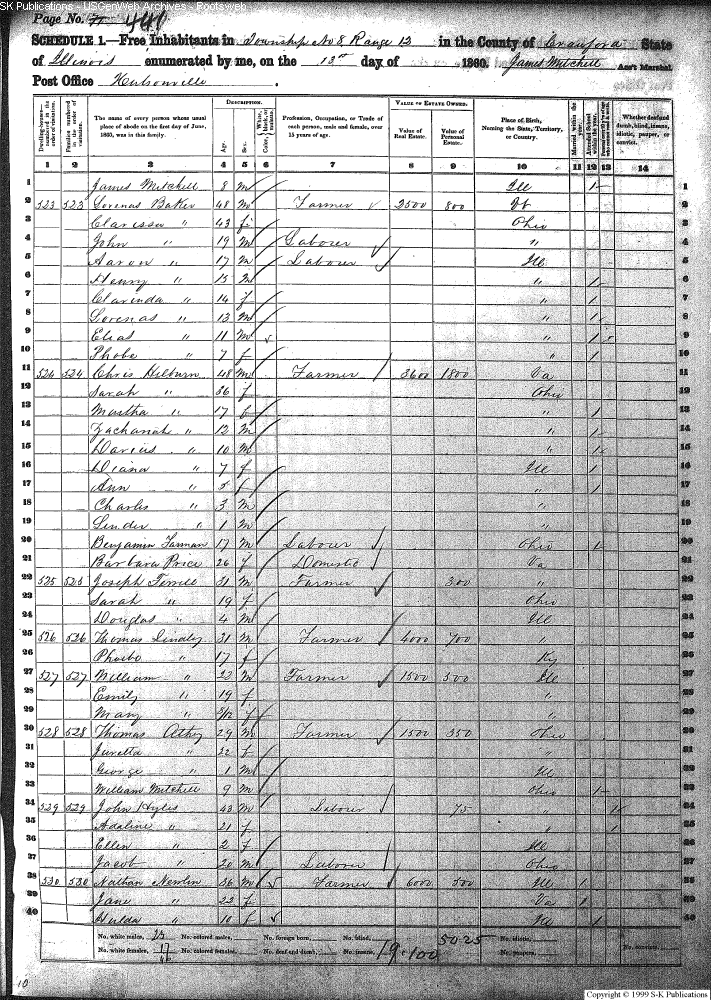 SK Publications - USGenWeb Archives - Rootsweb
Page No. 440
SCHEDULE 1.—Free Inhabitants in Township No 8, Range 12 in the County of Crawford State
of Illinois enumerated by me, on the 13th day of 1860. James Mitchell Ass't Marshal.
Post Office Hutsonville.
Dwelling-houses—numbered in the order of visitation.
Families numbered in the order of visitation.
The name of every person whose usual place of abode on the first day of June, 1860, was in this family.
DESCRIPTION.
Age.
Sex.
Color, White, black, or mulatto.
Profession, Occupation, or Trade of each person, male and female, over 15 years of age.
VALUE OF ESTATE OWNED.
Value of Real Estate.
Value of Personal Estate.
Place of Birth, Naming the State, Territory, or Country.
Married within the year.
Attended School within the year.
Whether deaf and dumb, blind, insane, idiotic, pauper, or convict.
1 2 3 4 5 6 7 8 9 10 11 12 13 14
1 James Mitchell 8 m Ill 1 1
2 523 523 Lorenas Baker 48 m Farmer 2500 800 Vt 2
3 Clarissa " 43 f Ohio 3
4 John " 19 m Labourer " 4
5 Aaron " 17 m Labourer Ill 5
6 Henry " 15 m " 1 6
7 Clarinda " 14 f " 1 7
8 Lorenas " 13 m " 1 8
9 Elias " 11 m " 1 9
10 Phobe " 7 f " 1 10
11 524 524 Chris Hilburn 48 m Farmer 3600 1800 Va 11
12 Sarah " 36 f Ohio 12
13 Martha " 17 f " 1 13
14 Zachariah " 12 m " 1 14
15 Darius " 10 m " 1 15
16 Diana " 7 f Ill 1 16
17 Ann " 5 f " 1 17
18 Charles " 3 m " 18
19 Lender " 1 m " 19
20 Benjamin 17 m Labour Ohio 1 20
21 Barbara Price 26 f Domestic Va 21
22 525 525 Joseph Terrill 31 m Farmer 300 " 22
23 Sarah " 19 f Ohio 23
24 Douglas " 4 m Ill 24
25 526 526 Thomas Lindley 31 m Farmer 4000 700 " 25
26 Phoebe " 17 f Ky 26
27 527 527 William " 22 m Farmer 1500 500 Ill 27
28 Emily " 19 f " 28
29 Mary " f " 29
30 528 528 Thomas Athey 29 m Farmer 1500 350 Ohio 30
31 Juretta " 22 f " 31
32 George " 1 m Ill 32
33 William Mitchell 9 m Ohio 1 33
34 529 529 John Hyles 43 m Labour 75 " 34
35 Adaline " 21 f " 35
36 Ellen " 2 f Ill 36
37 Jacob " 20 m Labourer Ohio 37
38 530 530 Nathan Newlin 36 m Farmer 6000 500 Ill 1 38
39 Jane " 22 f Va 1 39
40 Hulda " 10 f Ill 1 40
No. white males, 23 No. colored males, No. foreign born, No. blind, No. idiotic,
No. white females, 17 No. colored females, No. deaf and dumb, No. insane, No. paupers, No. convicts,
19.100 5025
10
Copyright © 1999 S-K Publications